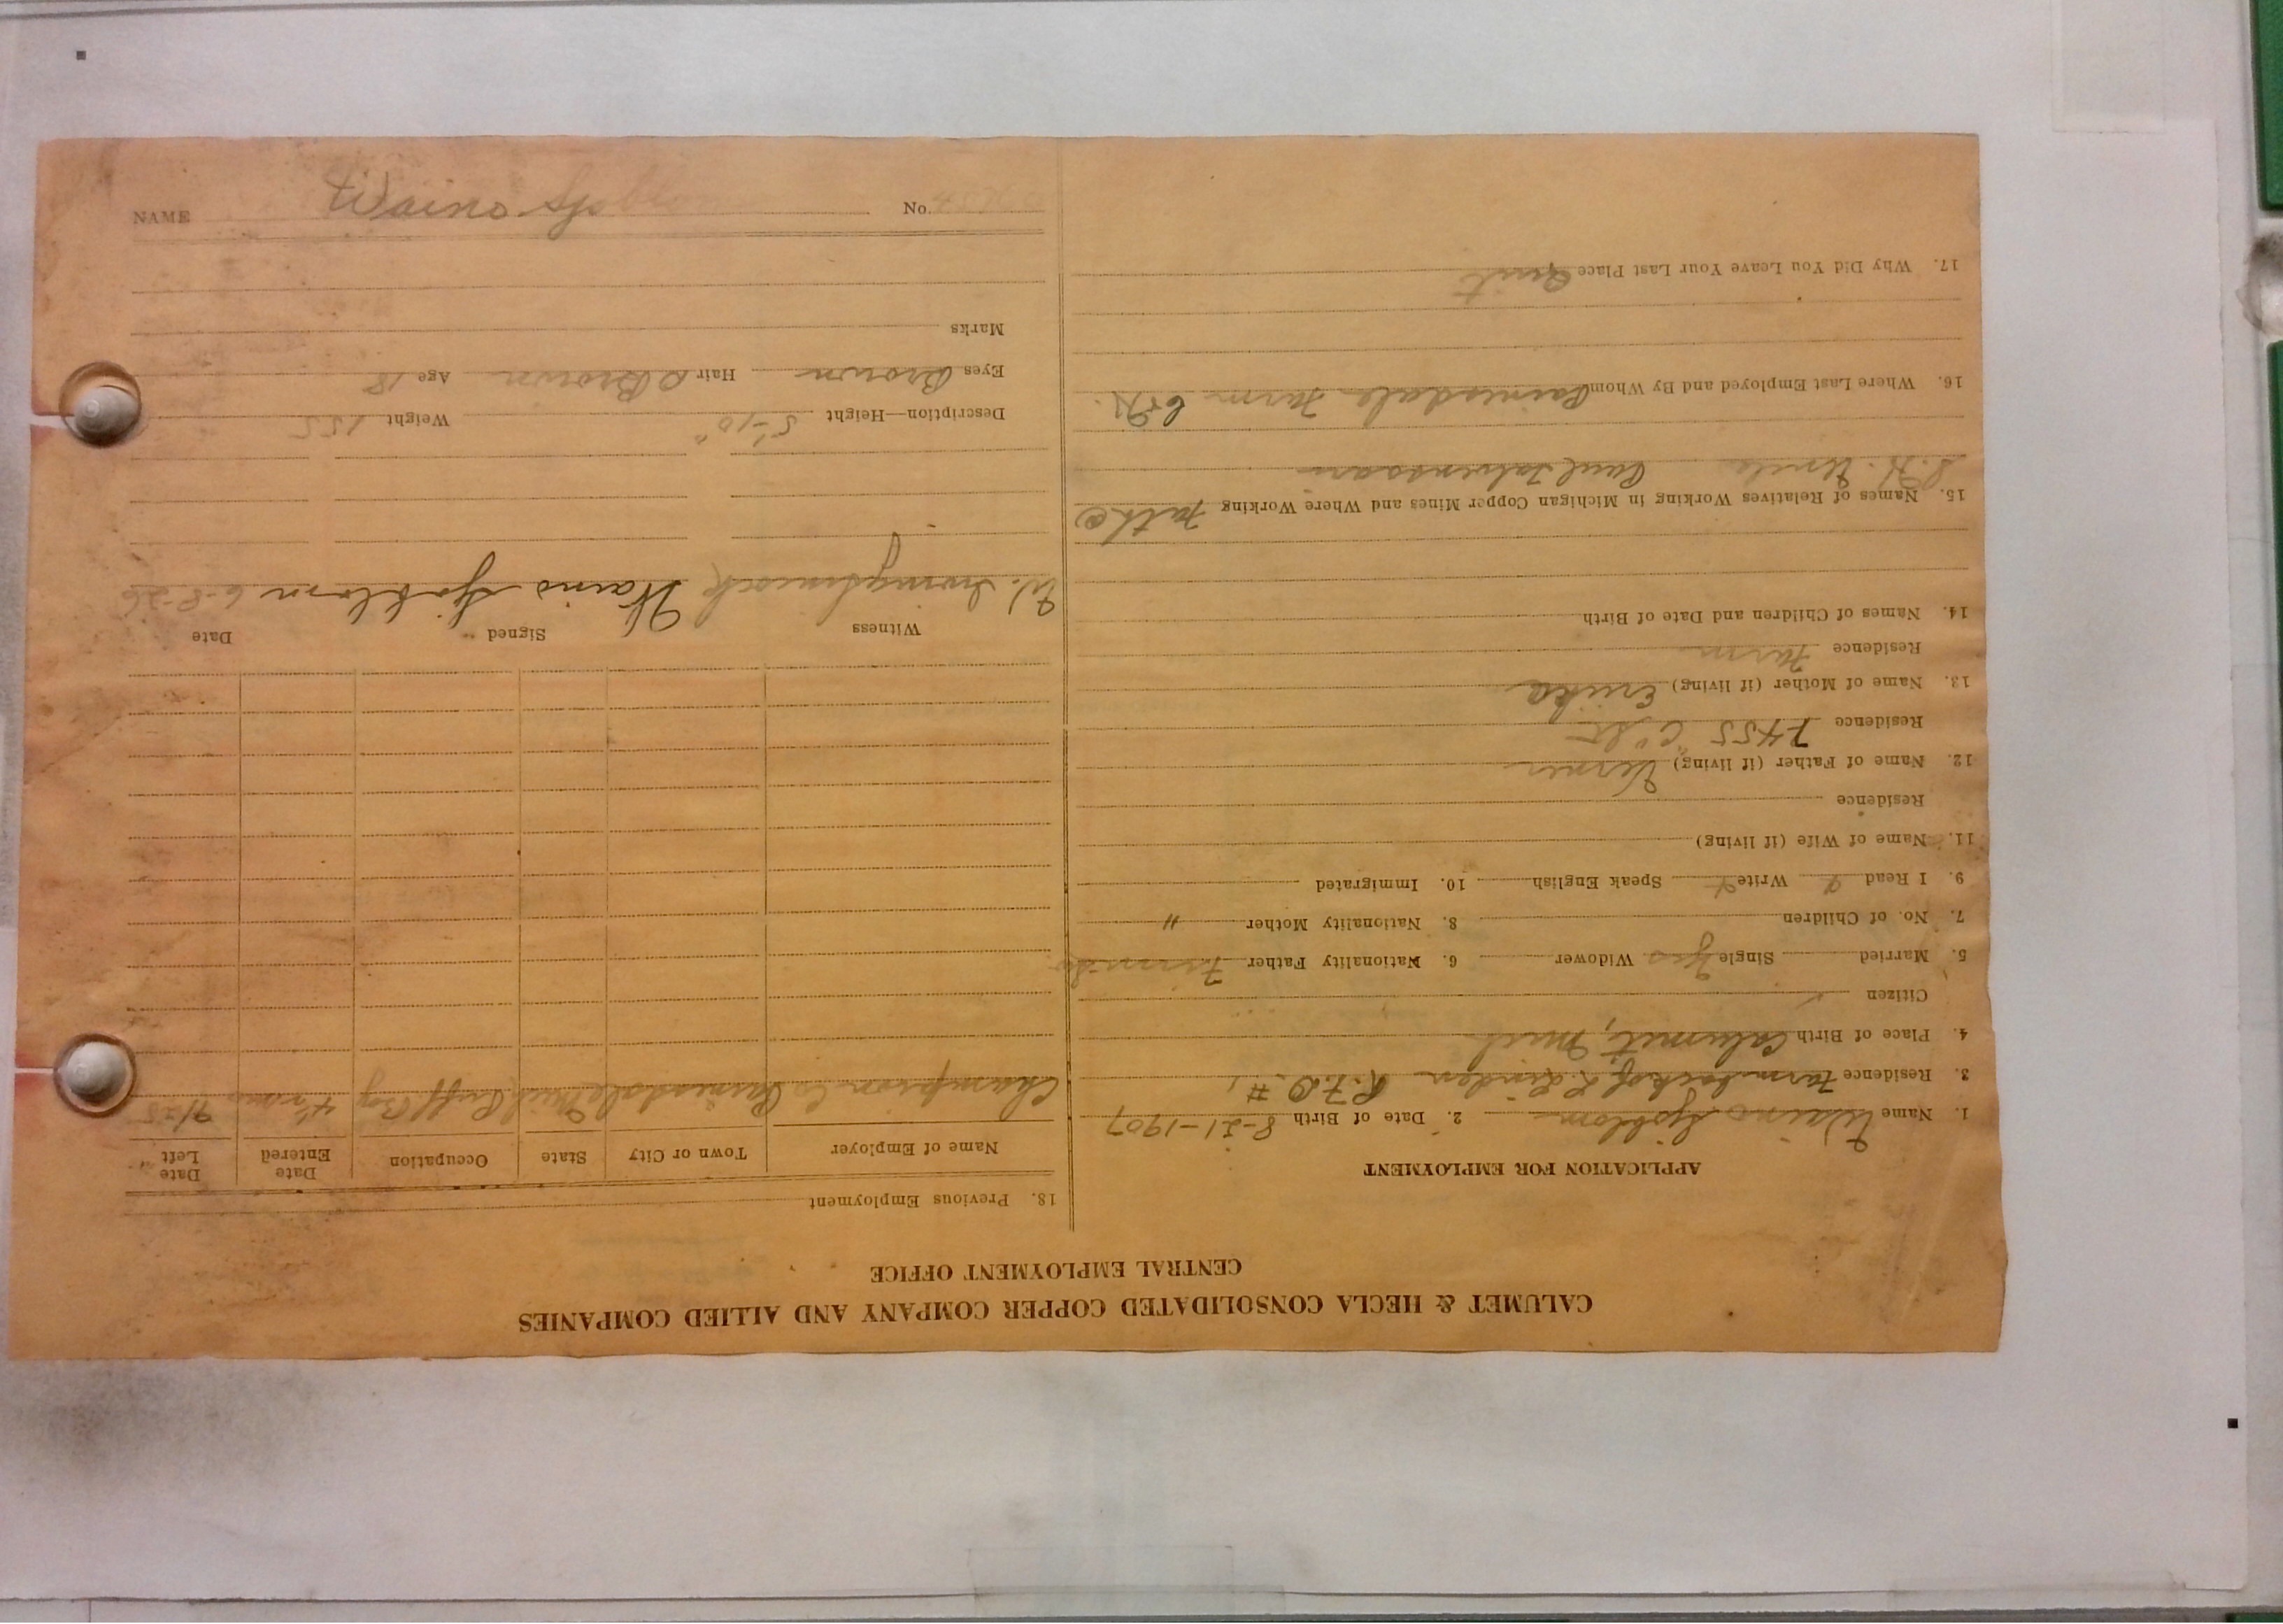 CALUMET & HECLA CONSOLIDATED COPPER COMPANY AND ALLIED COMPANIES
CENTRAL EMPLOYMENT OFFICE
APPLICATION FOR EMPLOYMENT
1. Name Waino Sjoblom 2. Date of Birth 8-21-1907
3. Residence Farm back of L. Linden R.F.D. #1
4. Place of Birth Calumet, Mich
Citizen
5. Married Single Yes Widower 6. Nationality Father Finnish
7. No. of Children 8. Nationality Mother "
9. I Read Write Speak English 10. Immigrated
11. Name of Wife (if living)
Residence
12. Name of Father (if living) Verner
Residence 7455 "C" St
13. Name of Mother (if living) Erika
Residence Farm
14. Names of Children and Date of Birth
15. Names of Relatives Working in Michigan Copper Mines and Where Working Fath
Uncle Paul
16. Where Last Employed and By Whom Painesdale Farm
17. Why Did You Leave Your Last Place Quit
18. Previous Employment
Name of Employer Town or City State Occupation Date Entered Date Left
Champion Co Painesdale Mich Boy 4 mos 9/25
Witness Signed Date
W. Waino Sjoblom 6-8-26
Description—Height 5'-10" Weight 155
Eyes Brown Hair D Brown Age 18
Marks
NAME Waino Sjoblom No.